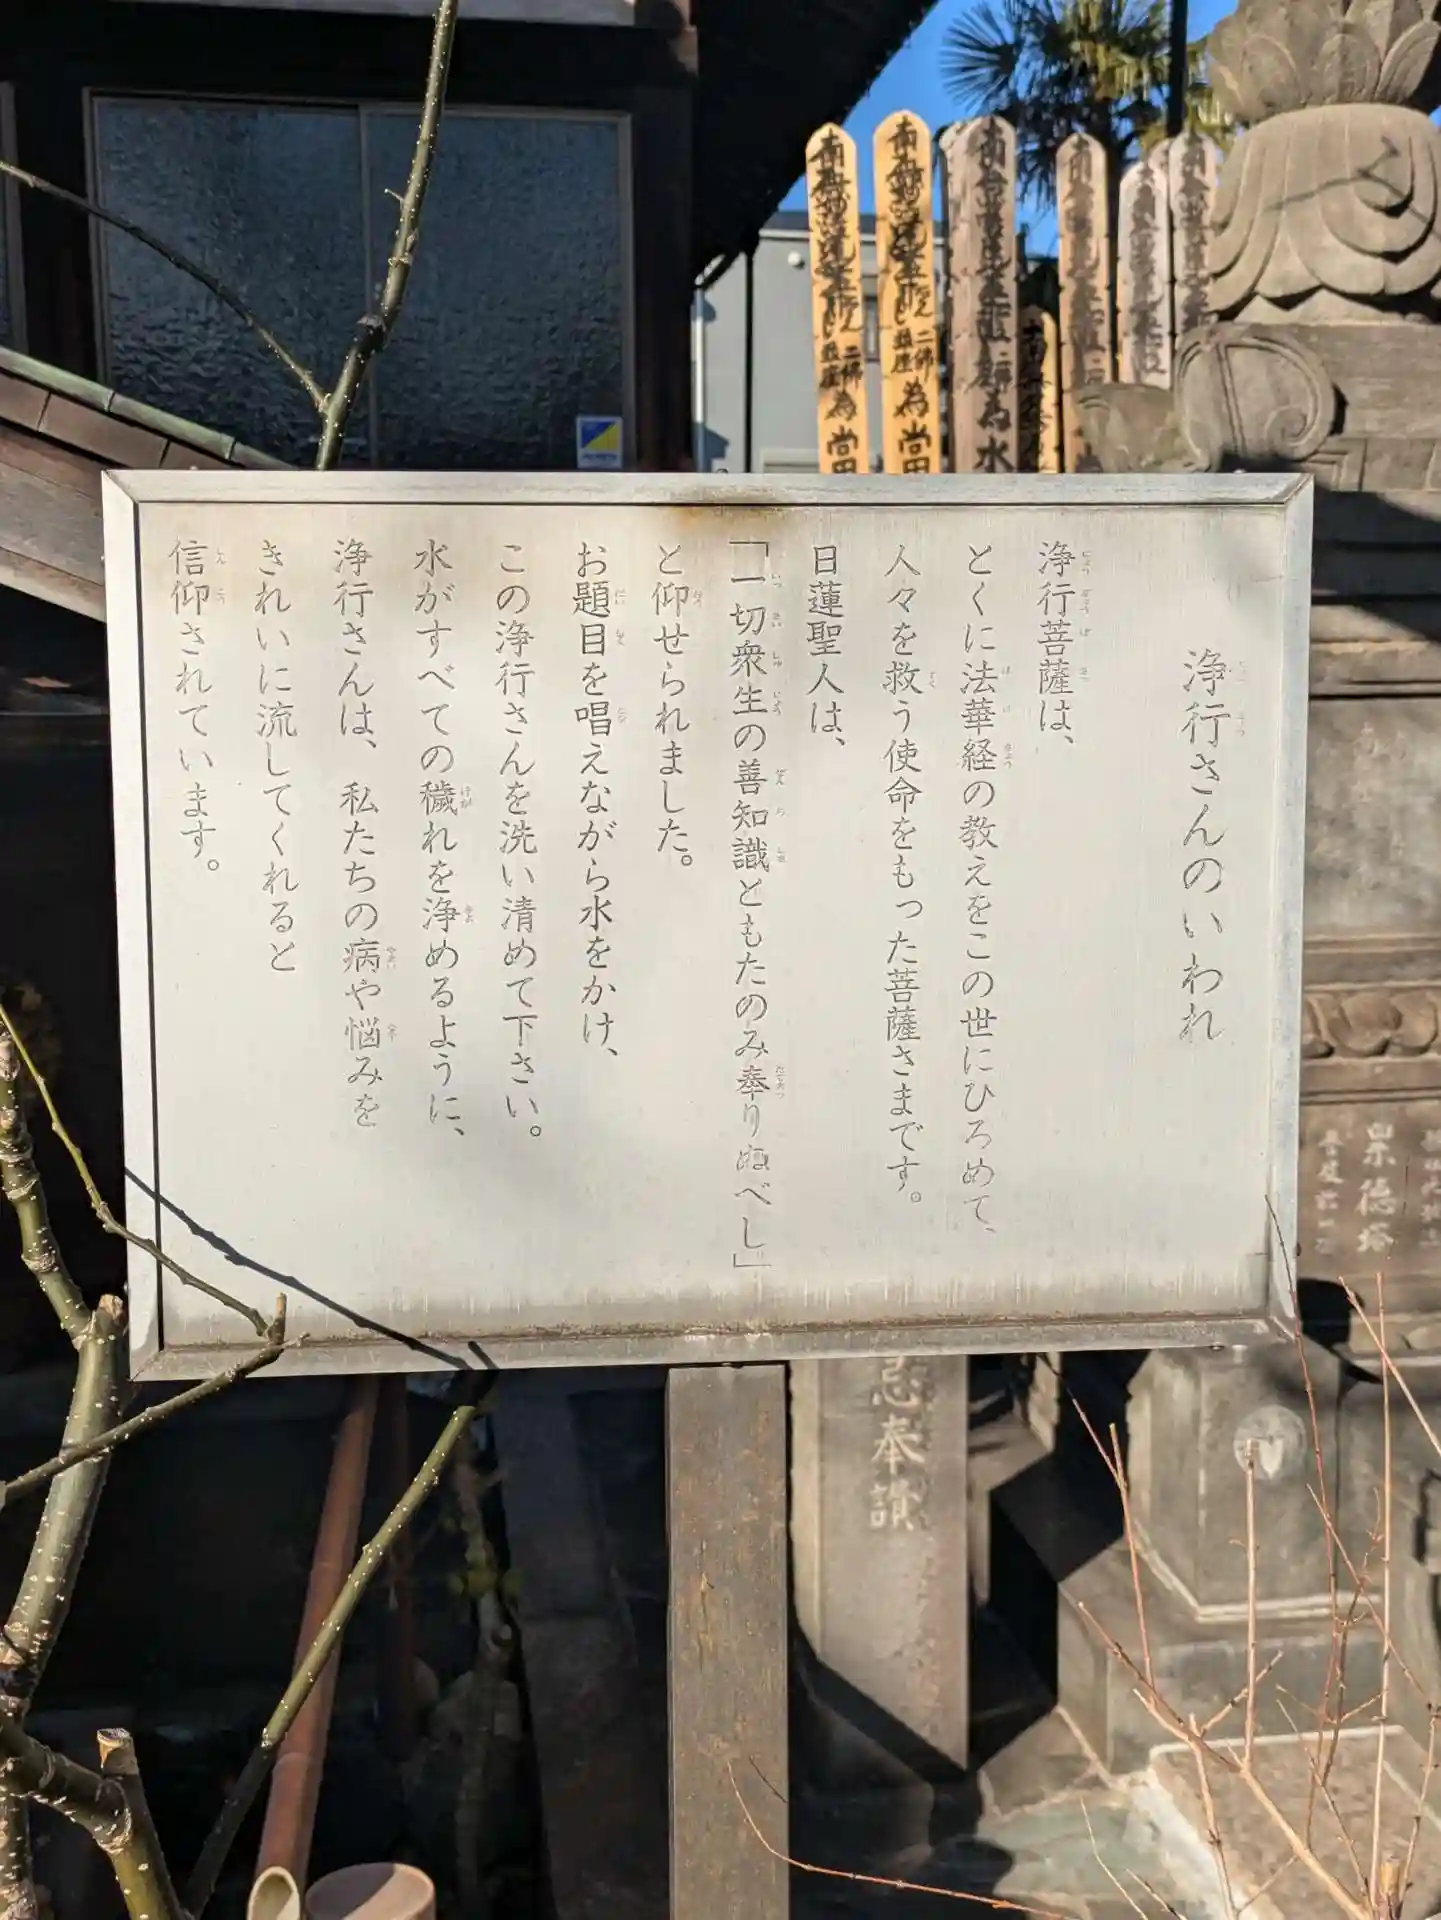 浄行さんのいわれ
浄行菩薩は、
とくに法華経の教えをこの世にひろめて、
人々を救う使命をもった菩薩さまです。
日蓮聖人は、
「一切衆生の善知識ともたのみ奉りぬべし」
と仰せられました。
お題目を唱えながら水をかけ、
この浄行さんを洗い清めて下さい。
水がすべての穢れを浄めるように、
浄行さんは、私たちの病や悩みを
きれいに流してくれると
信仰されています。
二佛為当田
二佛為当田
為水
忌奉讃
徳塔